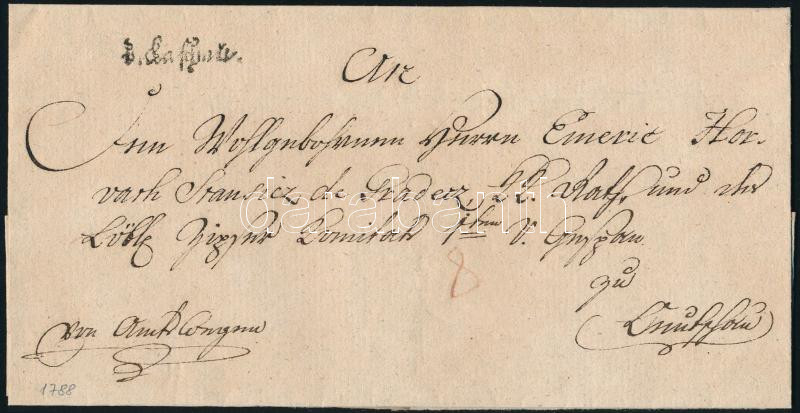 v. Kaschau.
An
Dem Wohlgebohrnen Herrn Emeric Hor-
vath Stansicz de Gradecz, KK. Rath, und der
Löbl Zipser Comitats 1ten V. Gespan
8
zu
von Amtswegen
Leutschau
1788
darabanth